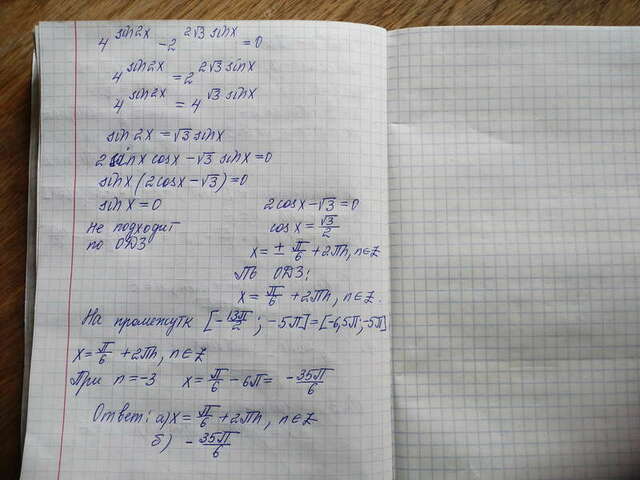 4^sin2x - 2^2√3 sinx = 0
4^sin2x = 2^2√3 sinx
4^sin2x = 4^√3 sinx
sin2x = √3 sinx
2 sinx cosx - √3 sinx = 0
sinx (2cosx - √3) = 0
sinx = 0
не подходит
по ОДЗ
2cosx - √3 = 0
cosx = √3/2
x = ± π/6 + 2πn, n∈Z
По ОДЗ:
x = π/6 + 2πn, n∈Z.
На промежутк [-13π/2; -5π] = [-6,5π; -5π]
x = π/6 + 2πn, n∈Z
При n = -3 x = π/6 - 6π = -35π/6
Ответ: а) x = π/6 + 2πn, n∈Z
б) -35π/6